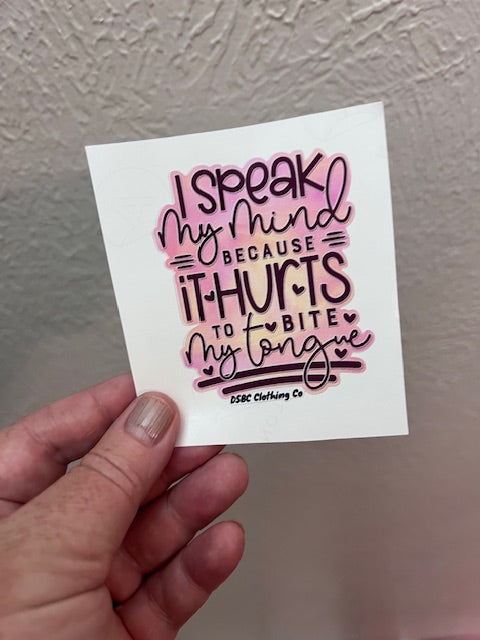 I SPEAK
my mind
BECAUSE
IT HURTS
TO BITE
my tongue
DSBC Clothing Co